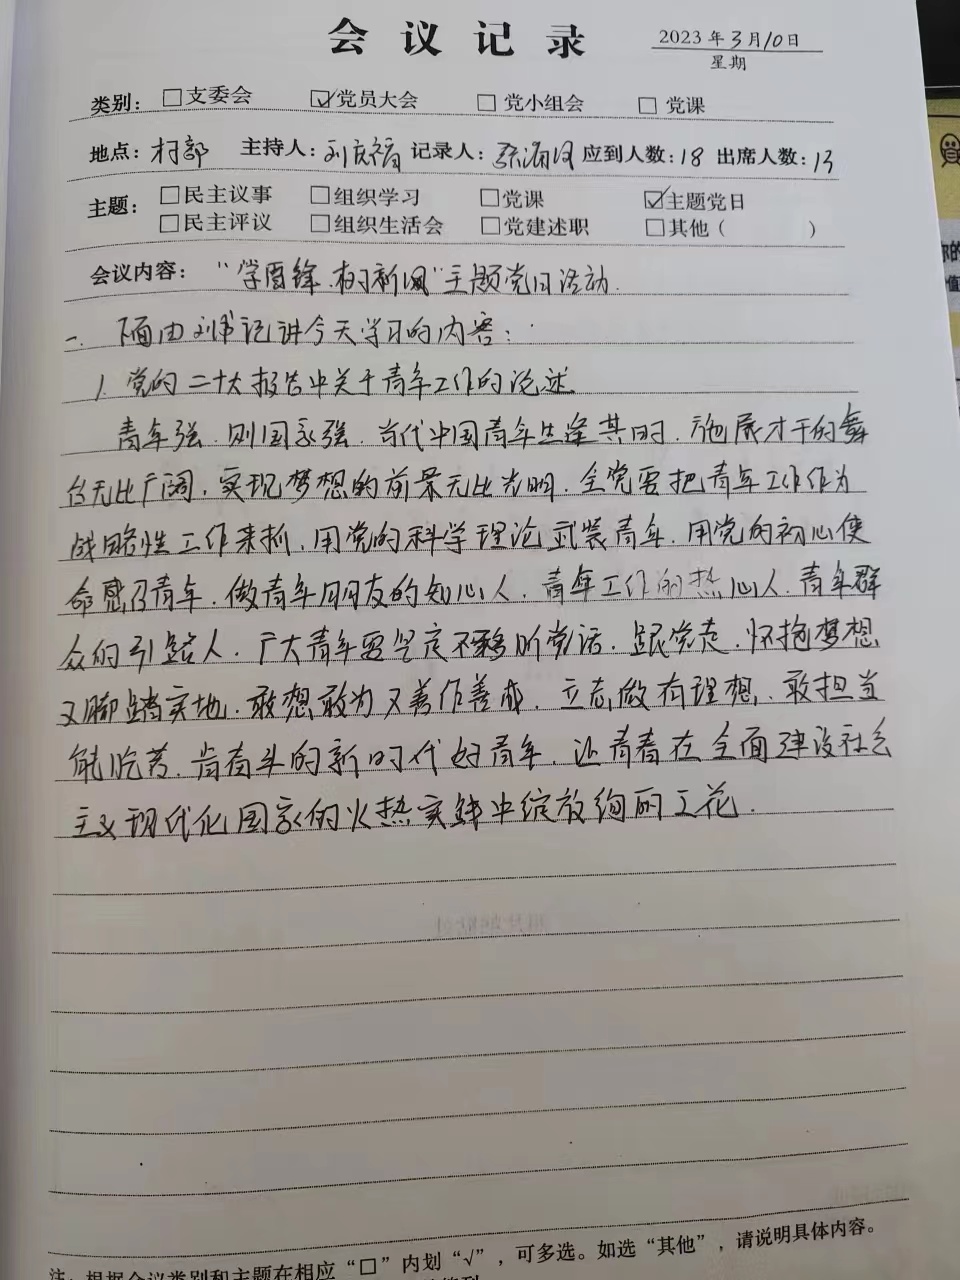 会议记录
2023年3月10日
星期
类别: □支委会 ☑党员大会 □党小组会 □党课
地点: 村部 主持人: 刘庆福 记录人: 应到人数: 18 出席人数: 13
主题: □民主议事 □组织学习 □党课 ☑主题党日
□民主评议 □组织生活会 □党建述职 □其他( )
会议内容: “学雷锋.树新风”主题党日活动.
一. 下面由刘书记讲今天学习的内容:
1. 党的二十大报告中关于青年工作的论述
青年强.则国家强.当代中国青年生逢其时.施展才干的舞
台无比广阔.实现梦想的前景无比光明.全党要把青年工作作为
战略性工作来抓.用党的科学理论武装青年.用党的初心使
命感召青年.做青年朋友的知心人.青年工作的热心人.青年群
众的引路人.广大青年要坚定不移听党话.跟党走.怀抱梦想
又脚踏实地.敢想敢为又善作善成.立志做有理想.敢担当
能吃苦.肯奋斗的新时代好青年.让青春在全面建设社会
主义现代化国家的火热实践中绽放绚丽之花.
注: 根据会议类别和主题在相应“□”内划“√”,可多选。如选“其他”,请说明具体内容。